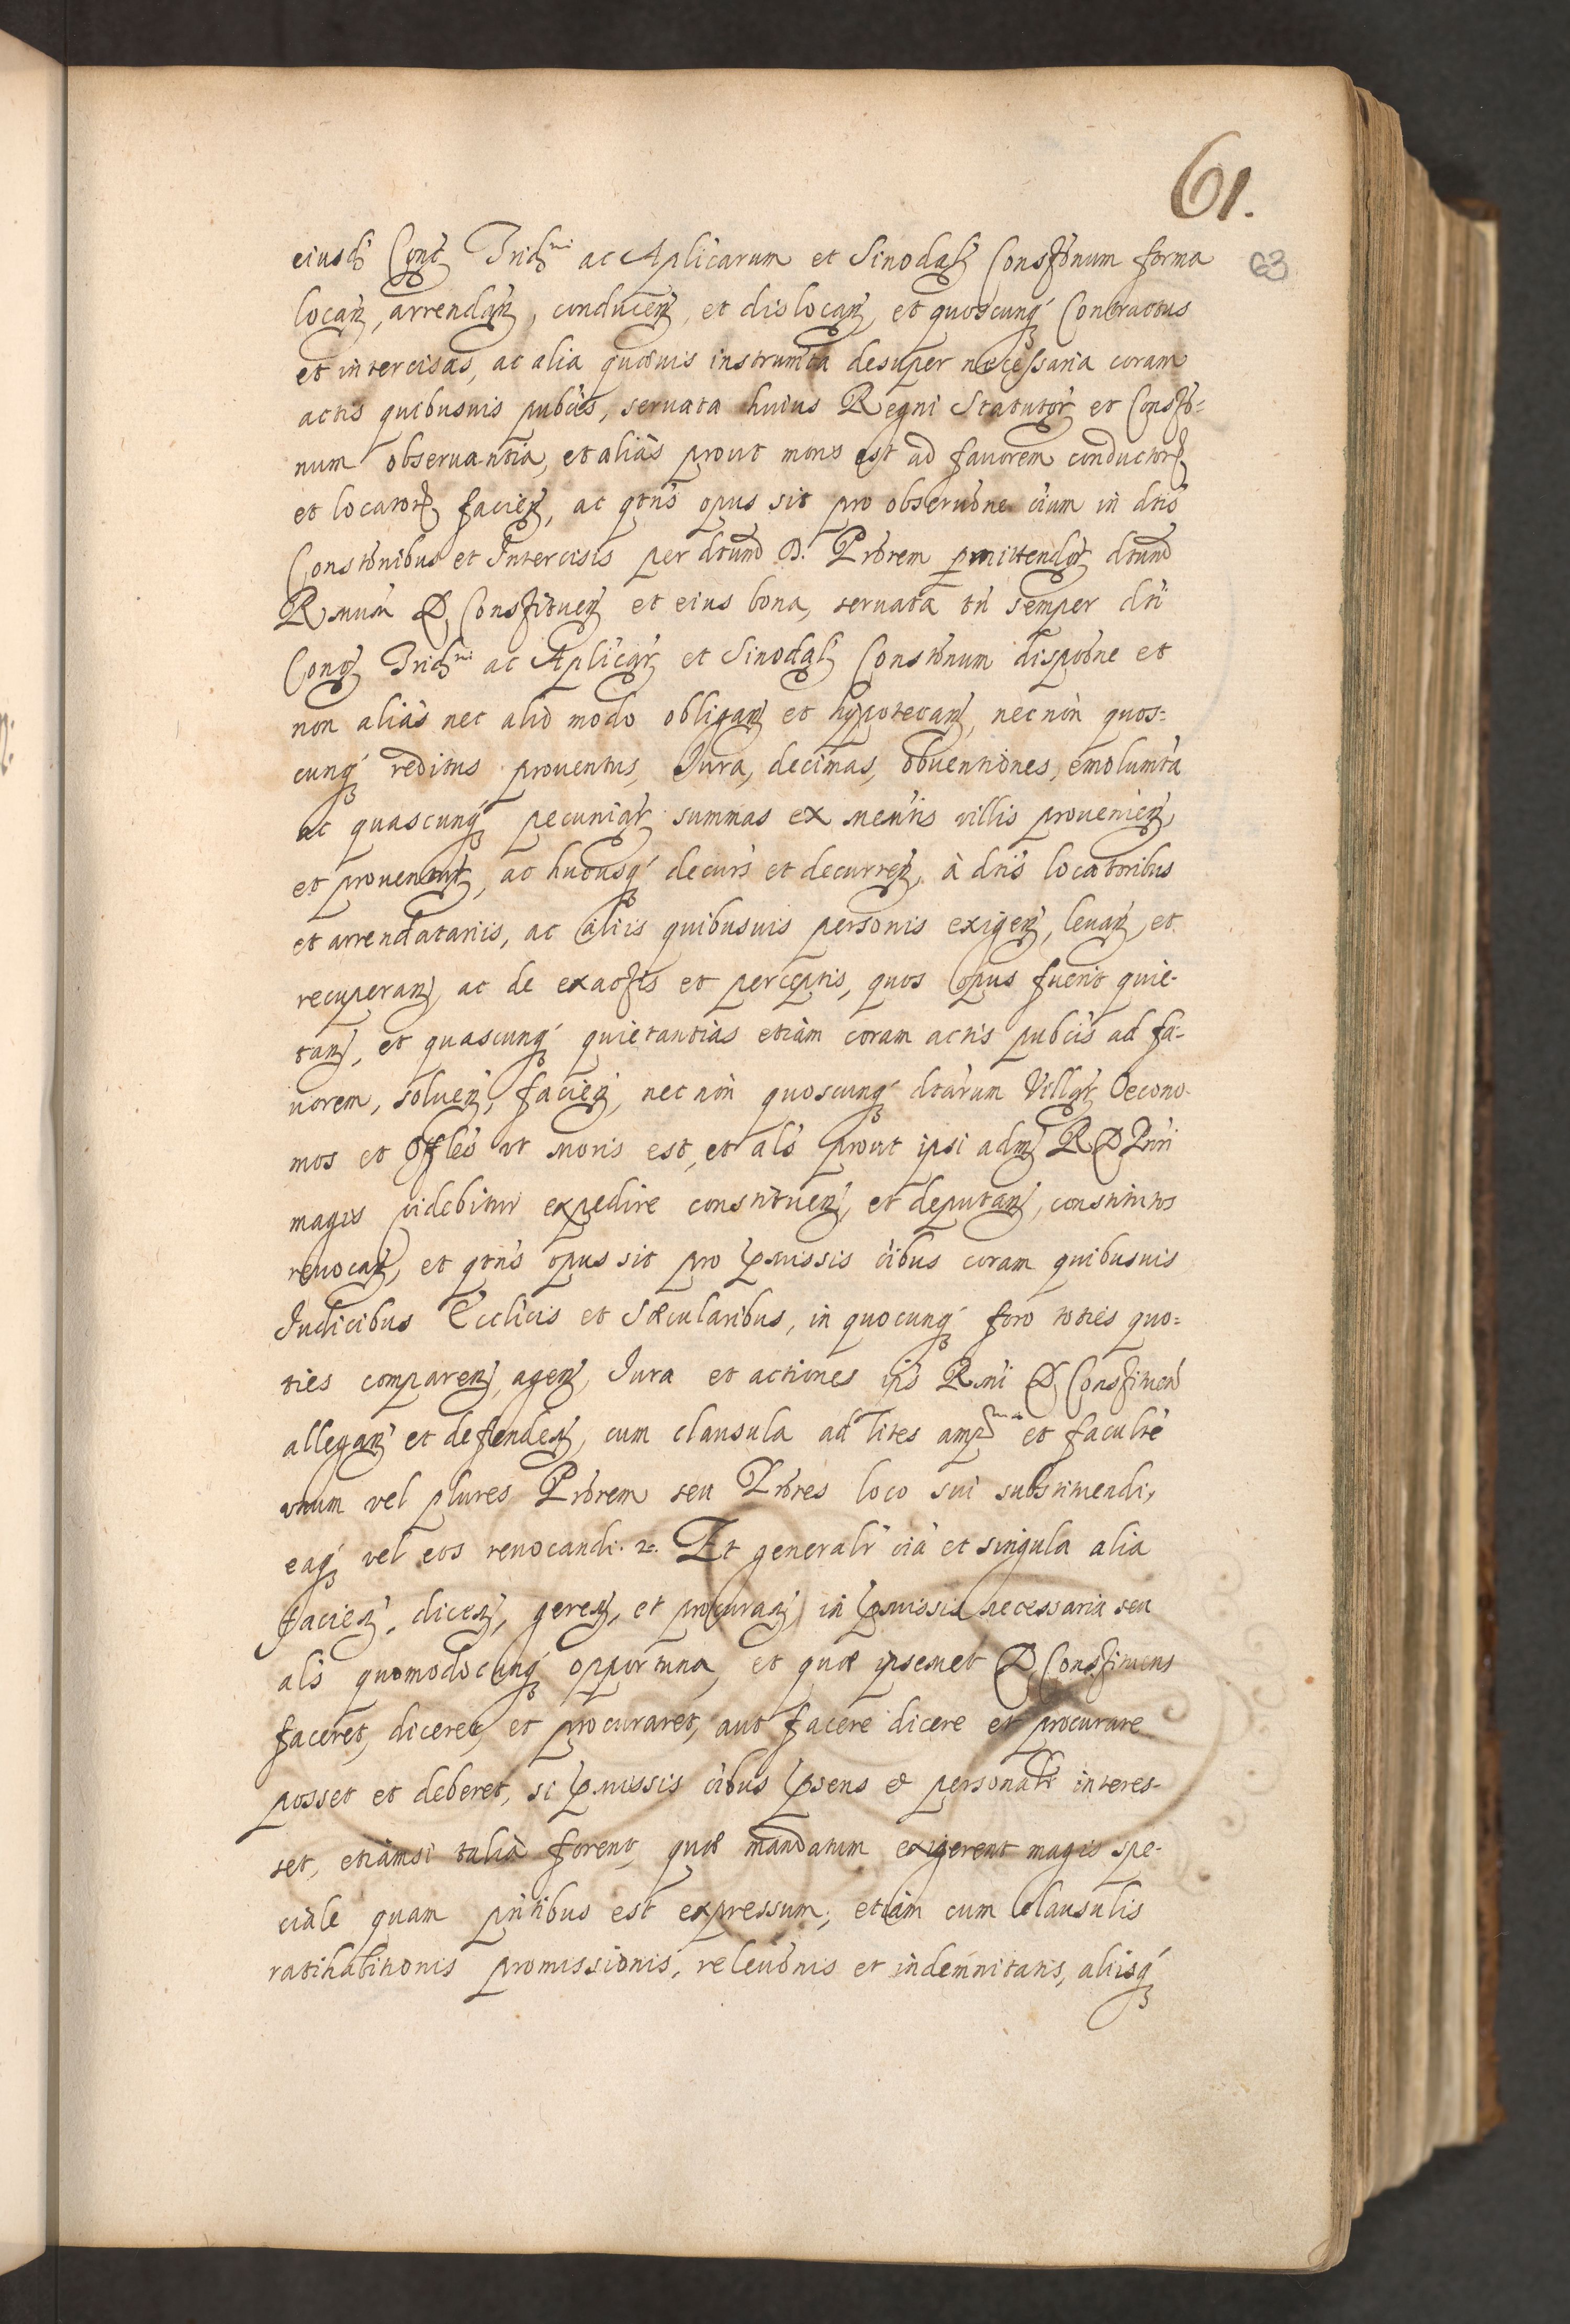 61.
63
eiusd Conc Trid.ni ac Aplicarum et Sinodal Constōnum forma
locan, arrendan, conducen, et dislocan, et quoscunq Contractus
et intercisas, ac alia quæuis instrumta desuper necessaria coram
actis quibusuis pubcis, seruata huius Regni Statutor et Constō=
num obseruantia, et alias prout moris est ad fauorem conductor
et locator facien, ac qtns opus sit pro obseruōne oium in dtis
Constōnibus et Intercisis per dtum D. Prōrem pmittendor dtum
Rmum D. Constituen et eius bona, seruata tn semper dti
Conc Trid.ni ac Aplicar et Sinodal Constōnum dispōne et
non alias nec alio modo obligan et hypotecan, nec non quos=
cunq reditus prouentus, Iura, decimas, obuentiones, emolumta
ac quascunq pecuniar summas ex mentis villis prouenien,
et prouentur, ac hucusq decurs et decurren, à dtis locatoribus
et arrendatariis, ac aliis quibusuis personis exigen, leuan, et
recuperan, ac de exactis et perceptis, quos opus fuerit quie-
tan, et quascunq quietantias etiam coram actis pubcis ad fa-
uorem, soluen, facien, nec non quoscunq dtarum Villar Oecono-
mos et Offles ut moris est, et als prout ipsi adm R D Prōri
magis videbitur expedire constituen, et deputan, constitutos
reuocan, et qtns opus sit pro pmissis oibus coram quibusuis
Iudicibus Ecclicis et Sæcularibus, in quocunq foro toties quo=
ties comparen, agen, Iura et actiones ips Rmi D. Constituen
allegan et defenden, cum clausula ad lites amp.ma et faculte
unum vel plures Prōrem seu Prōres loco sui substituendi,
eaq vel eos reuocandi. &c. Et generalr oia et singula alia
facien, dicen, geren, et procuran, in pmissis necessaria seu
als quomodocunq opportuna, et quæ ipsemet D. Constituens
faceret, diceret, et procuraret, aut facere dicere et procurare
posset et deberet, si pmissis oibus psens et personalr interes-
set, etiamsi talia forent, quæ mandatum exigerent magis spe-
ciale quam pntibus est expressum, etiam cum clausulis
ratihabitionis promissionis, releuōnis et indemnitatis, aliisq